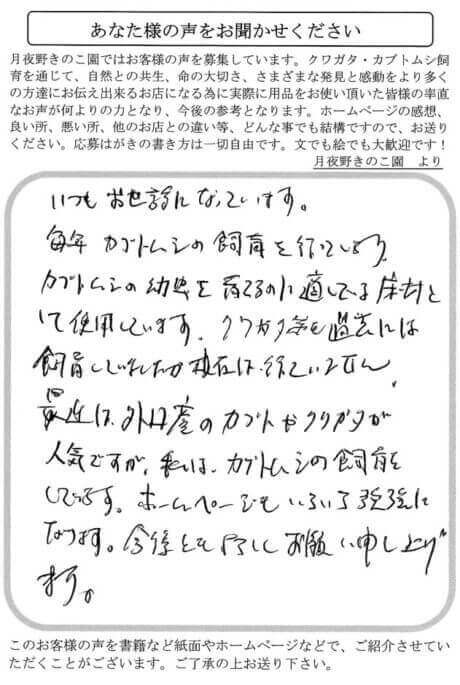 あなた様の声をお聞かせください
月夜野きのこ園ではお客様の声を募集しています。クワガタ・カブトムシ飼
育を通じて、自然との共生、命の大切さ、さまざまな発見と感動をより多く
の方達にお伝え出来るお店になる為に実際に用品をお使い頂いた皆様の率直
なお声が何よりの力となり、今後の参考となります。ホームページの感想、
良い所、悪い所、他のお店との違い等、どんな事でも結構ですので、お送り
ください。応募はがきの書き方は一切自由です。文でも絵でも大歓迎です！
月夜野きのこ園　より
いつもお世話になっています。
毎年カブトムシの飼育を行っています。
カブトムシの幼虫を育てるのに適している床材と
して使用しています。クワガタ等も過去には
飼育していましたが現在は行っていません。
最近は、外国産のカブトやクワガタが
人気ですが、私は、カブトムシの飼育を
しています。ホームページもいろいろ勉強に
なります。今後ともよろしくお願い申し上げ
ます。
このお客様の声を書籍など紙面やホームページなどで、ご紹介させてい
ただくことがございます。ご了承の上お送り下さい。